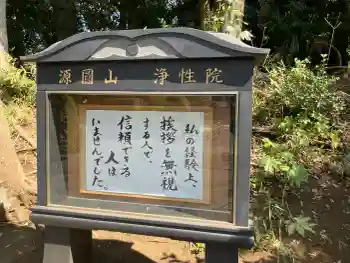 源圓山 浄性院
私の経験上、
挨拶を無視
する人で、
信頼できる
人は
いませんでした